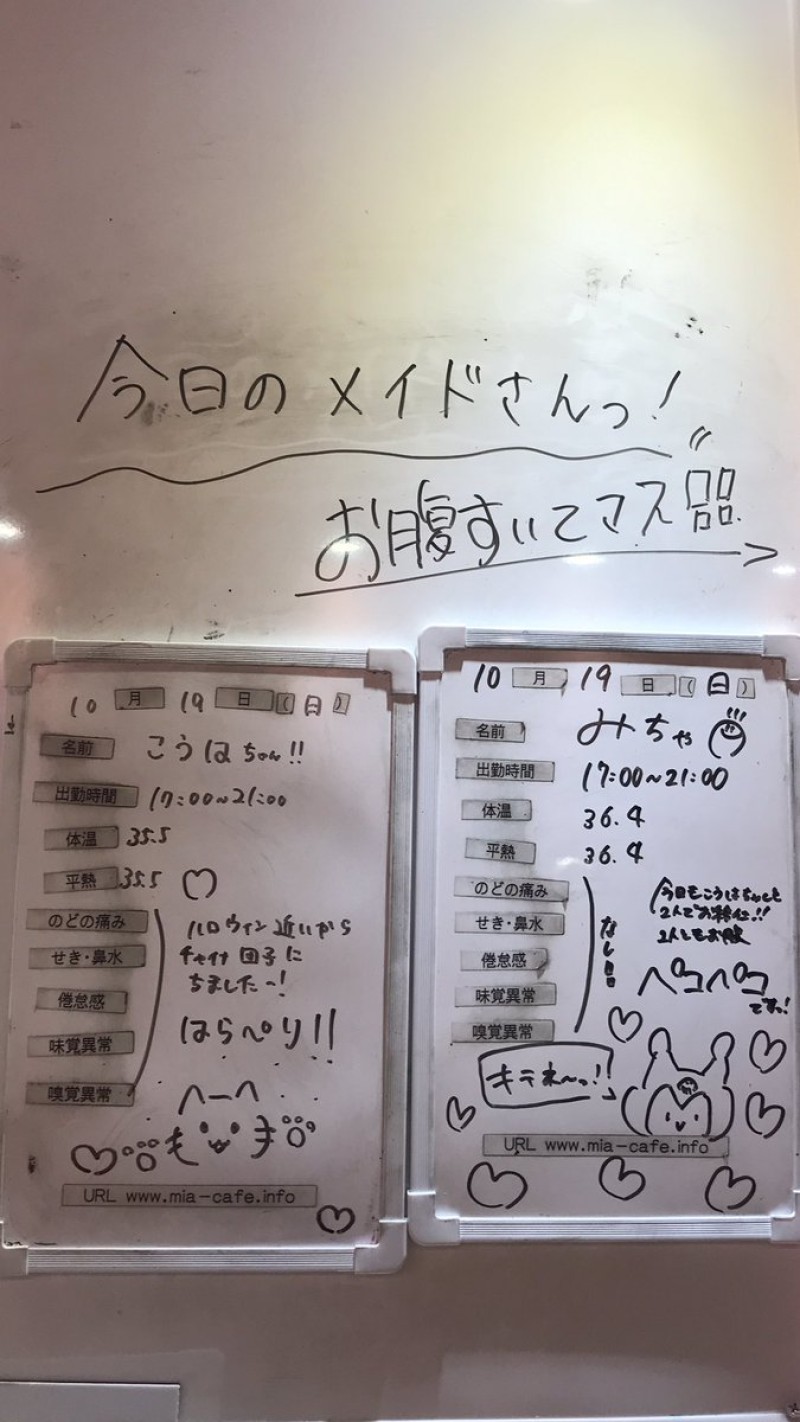 今日のメイドさんっ!
お腹すいてマス
10月19日(日)
名前 こうはちゃん!!
出勤時間 17:00~21:00
体温 35.5
平熱 35.5
のどの痛み
せき・鼻水
倦怠感
味覚異常
嗅覚異常
ハロウィン近いから
チャイナ団子に
ちました~!
はらぺり!!
URL www.mia-cafe.info
10月19日(日)
名前 みちゃ
出勤時間 17:00~21:00
体温 36.4
平熱 36.4
のどの痛み
せき・鼻水
倦怠感
味覚異常
嗅覚異常
なし
今日もこうはちゃんと
2人でお給仕!!
2人ともお腹
ペコペコ
ですっ!
キテネ~っ!!
URL www.mia-cafe.info